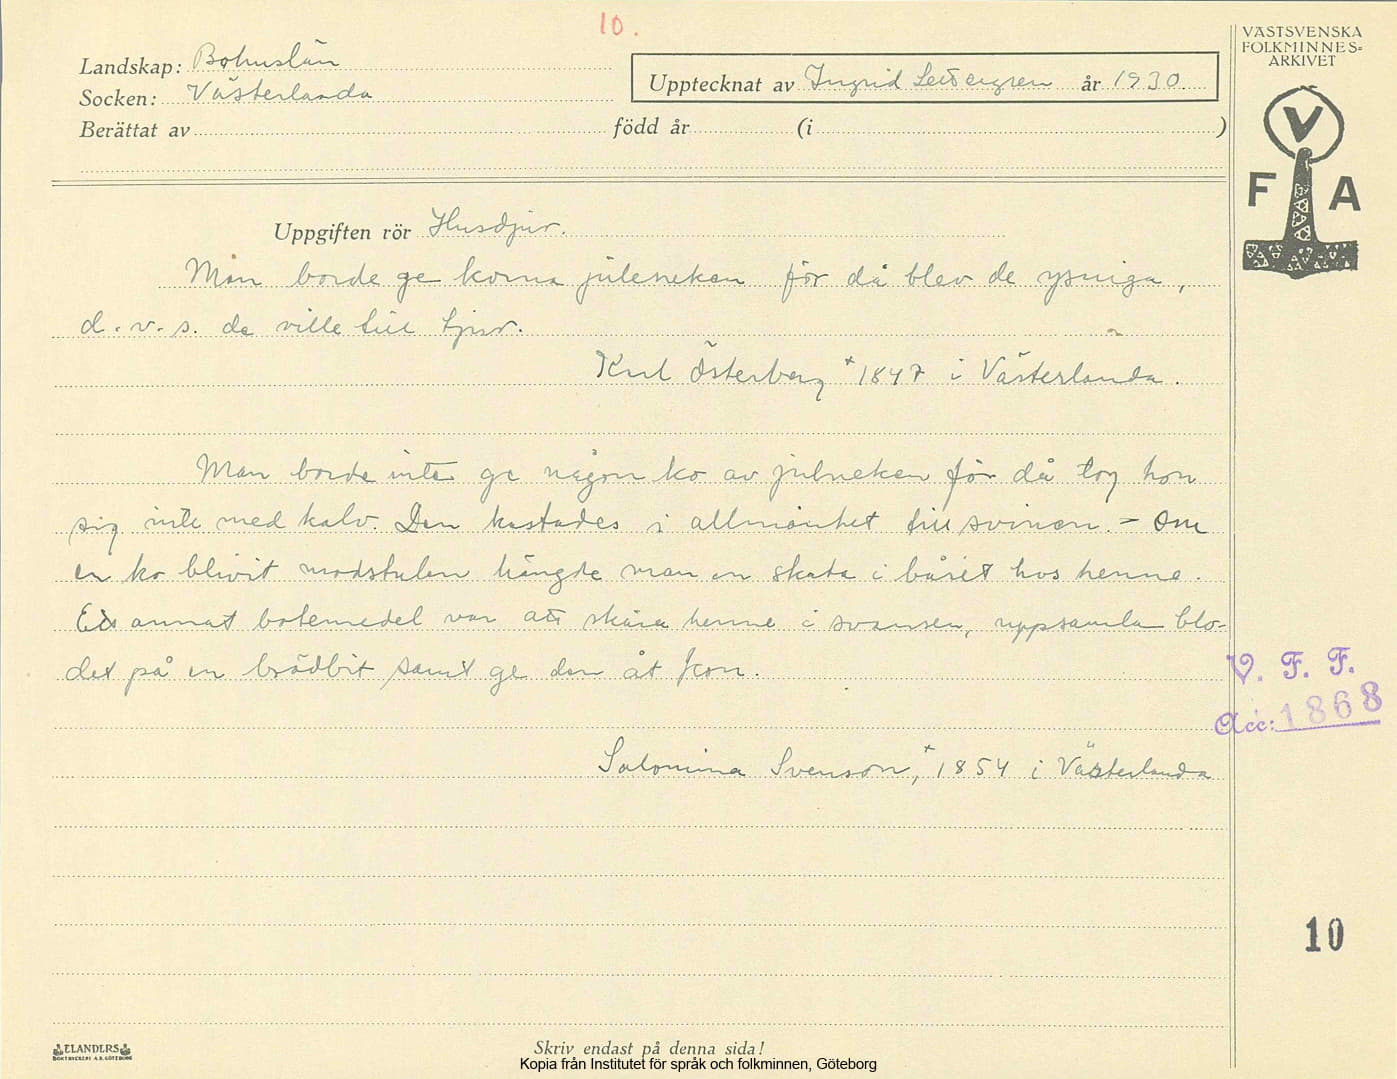 10.
VÄSTSVENSKA
FOLKMINNES=
ARKIVET
Landskap: Bohuslän
Socken: Västerlanda
Upptecknat av Ingrid år 1930.
Berättat av född år (i )
V
F A
Uppgiften rör Husdjur.
Man borde ge korna julneken för då blev de ysniga,
d.v.s. de ville till tjur.
Karl Österberg *1847 i Västerlanda.
Man borde inte ge någon ko av julneken för då tog hon
sig inte med kalv. Den kastades i allmänhet till svinen. - Om
en ko blivit modstulen hängde man en skata i båset hos henne.
Ett annat botemedel var att skära henne i svansen, uppsamla blo-
det på en brödbit samt ge den åt kon.
V. F. F.
Acc: 1868
Salomina Svenson, *1854 i Västerlanda
10
ELANDERS
BOKTRYCKERI A.B. GÖTEBORG
Skriv endast på denna sida!
Kopia från Institutet för språk och folkminnen, Göteborg